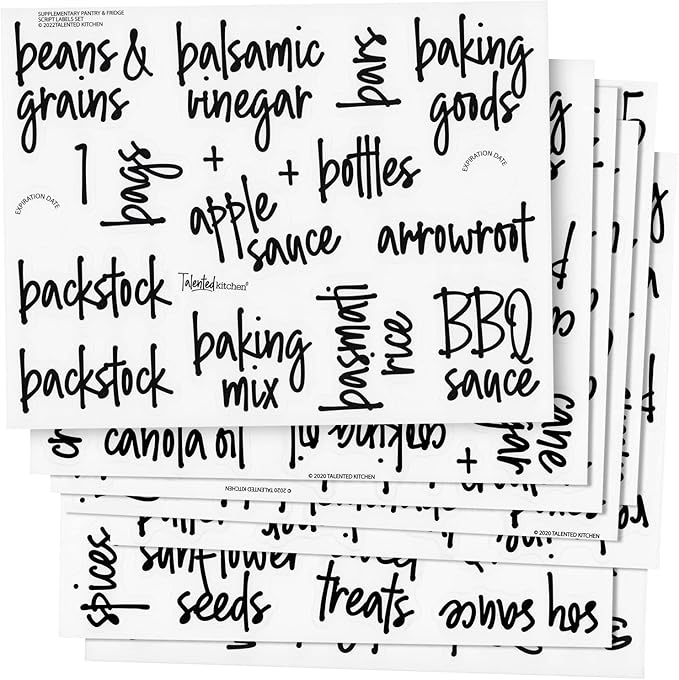 SUPPLEMENTARY PANTRY & FRIDGE
SCRIPT LABELS SET
© 2022 TALENTED KITCHEN
beans &
grains
balsamic
vinegar
bars
baking
goods
1
bags
+
apple
sauce
+
bottles
EXPIRATION DATE
EXPIRATION DATE
arrowroot
backstock
Talented kitchen®
backstock
baking
mix
basmati
rice
BBQ
sauce
canola oil
cooking oil
+
cane
© 2020 TALENTED KITCHEN
© 2020 TALENTED KITCHEN
© 2020 TALENTED KITCHEN
5
spices
sunflower
seeds
treats
soy sauce